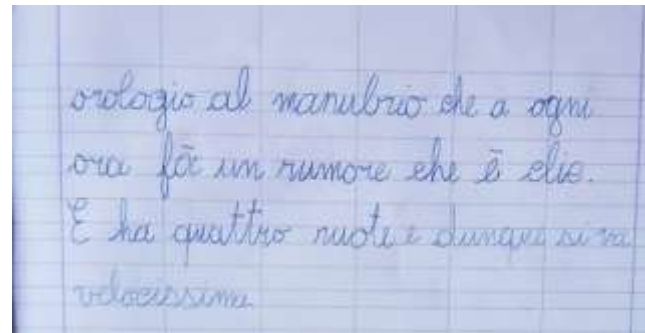 orologio al manubrio che a ogni
ora fà un rumore che è clic.
E ha quattro ruote e dunque si va
velocissima